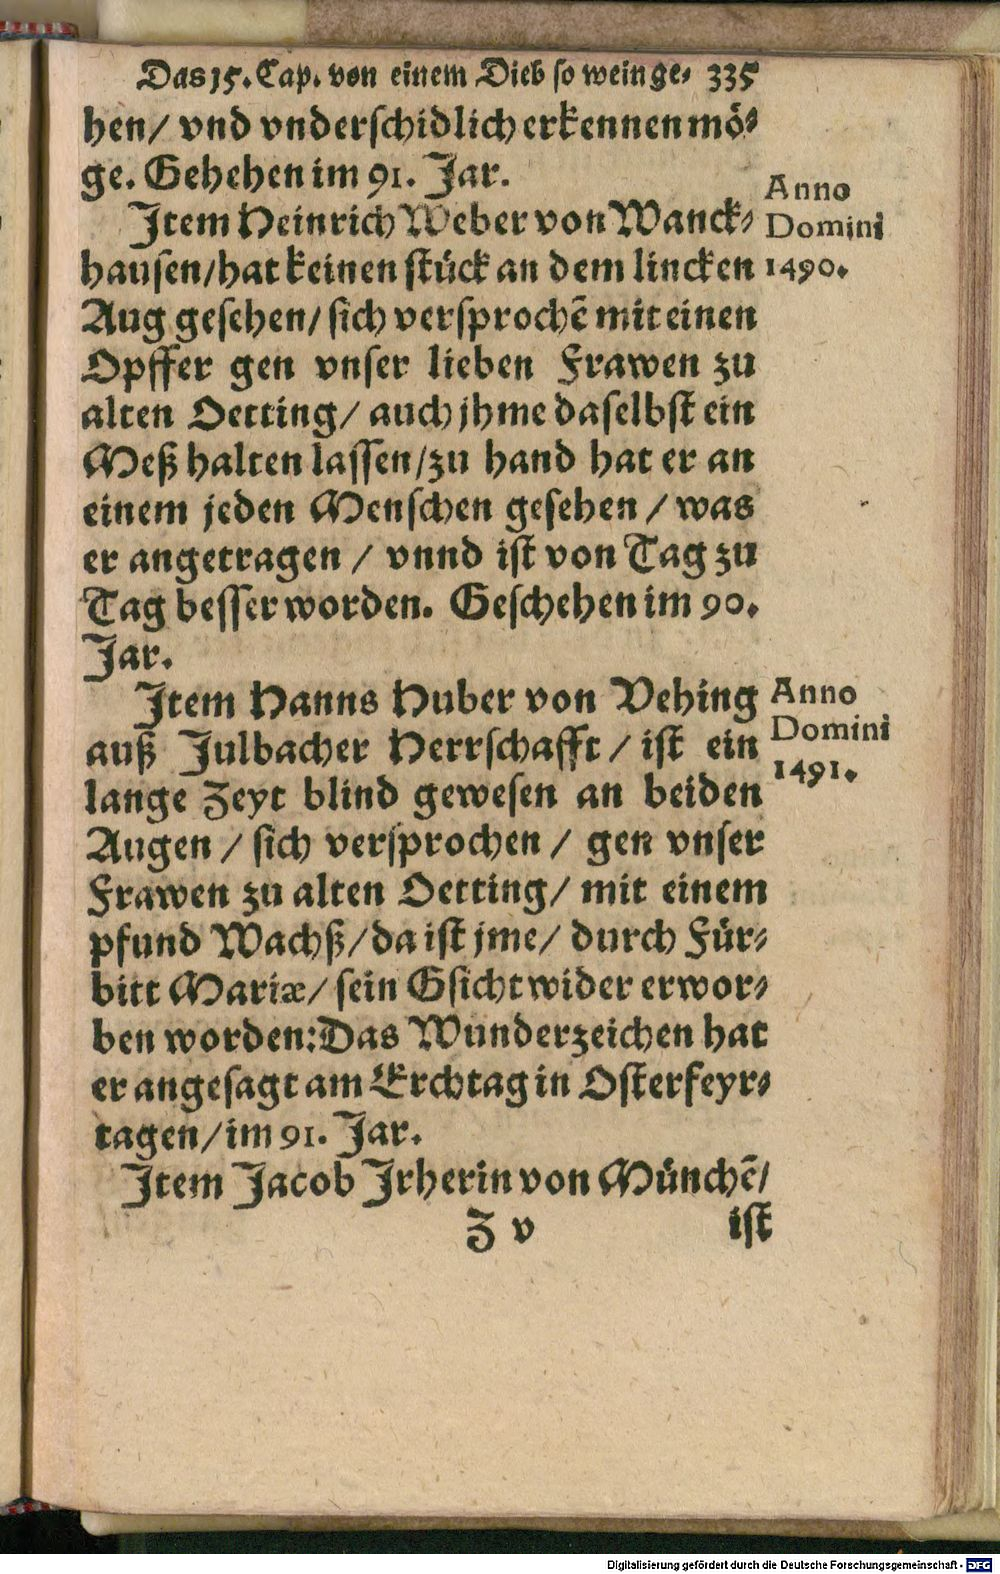 Das 15. Cap. von einem Dieb so wein ge- 335
hen/ vnd vnderschidlich erkennen mö-
ge. Gehehen im 91. Jar.
Anno
Domini
1490.
Item Heinrich Weber von Wanck-
hausen/hat keinen stück an dem lincken
Aug gesehen/ sich versprochē mit einen
Opffer gen vnser lieben Frawen zu
alten Oetting/ auch jhme daselbst ein
Meß halten lassen/zu hand hat er an
einem jeden Menschen gesehen / was
er angetragen / vnnd ist von Tag zu
Tag besser worden. Geschehen im 90.
Jar.
Anno
Domini
1491.
Item Hanns Huber von Vehing
auß Julbacher Herrschafft / ist ein
lange Zeyt blind gewesen an beiden
Augen / sich versprochen / gen vnser
Frawen zu alten Oetting/ mit einem
pfund Wachß/da ist jme/ durch Für-
bitt Mariæ/ sein Gsicht wider erwor-
ben worden: Das Wunderzeichen hat
er angesagt am Erchtag in Osterfeyr-
tagen/im 91. Jar.
Item Jacob Irherin von Münchē/
Z v ist
Digitalisierung gefördert durch die Deutsche Forschungsgemeinschaft - DFG